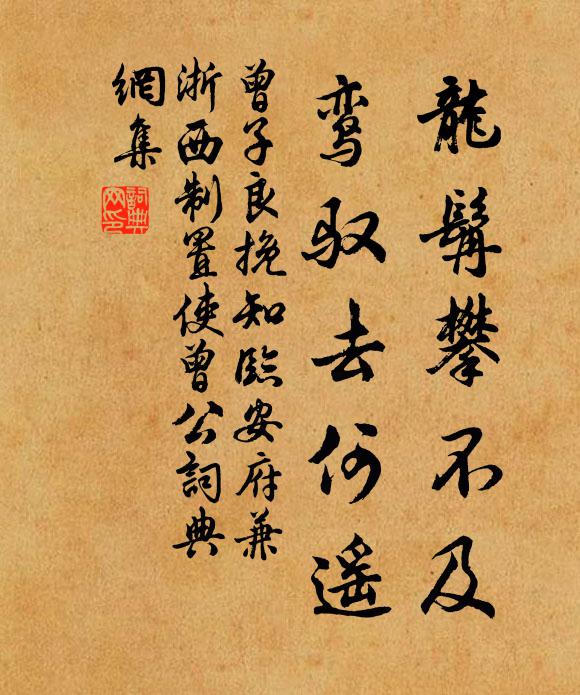 龍髯攀不及
鸾驭去何遥
曾子良挽知臨安府兼
浙西制置使曾公詞典
網集
詞典
网印